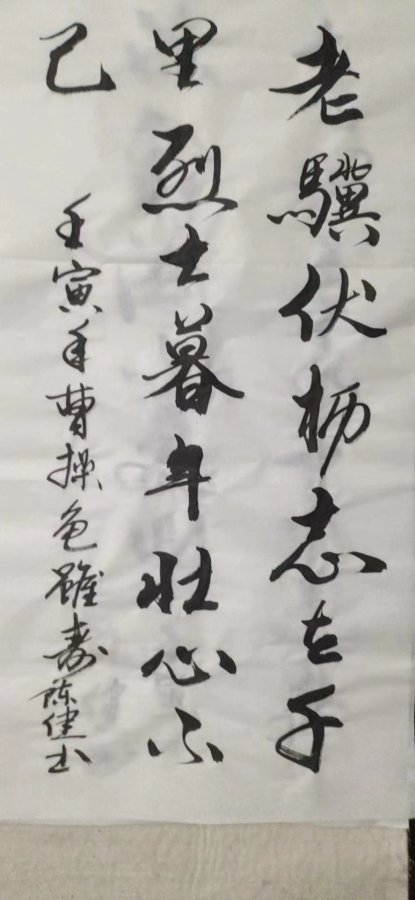 老驥伏枥志在千
里烈士暮年壮心不
已
壬寅年曹操龟虽寿陈健书